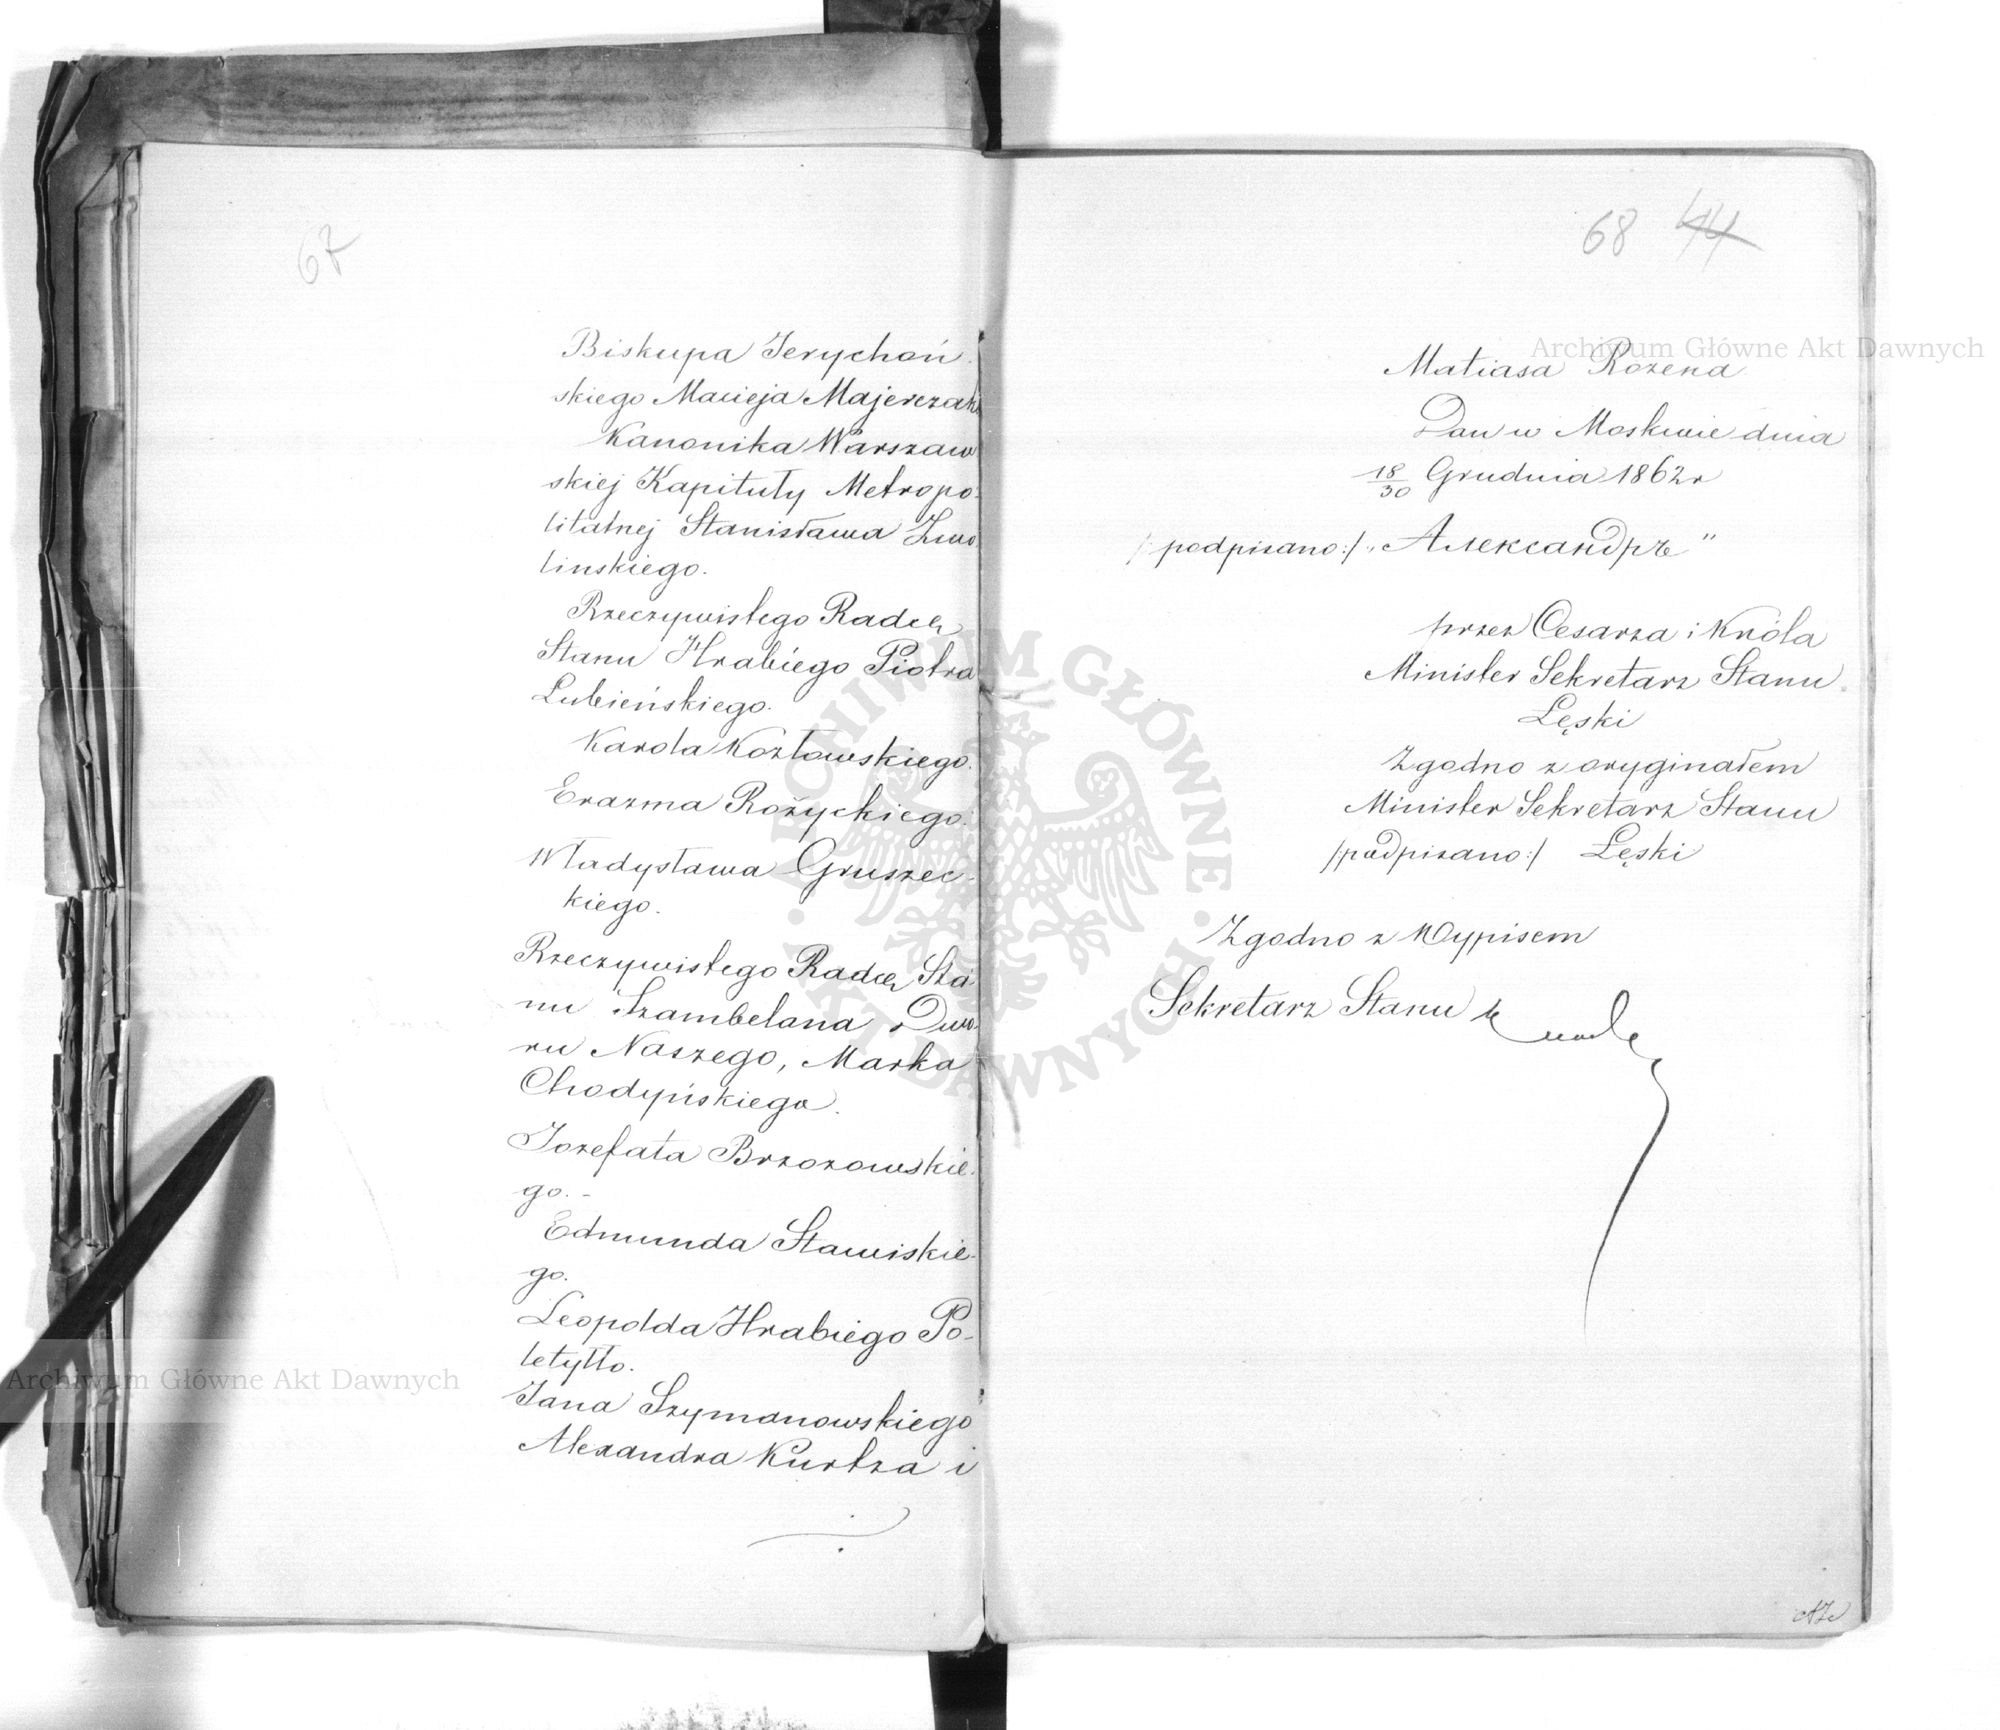 67
Biskupa Jerychoń-
skiego Macieja Majerczak
Kanonika Warszaw
skiej Kapituły Metropo-
litalnej Stanisława Zwo
linskiego.
Rzeczywistego Radcy
Stanu Hrabiego Piotra
Lubieńskiego.
Karola Kozłowskiego.
Erazma Rożyckiego.
Władysława Gruszec-
kiego.
Rzeczywistego Radcy Sta-
nu Szambelana Dwo-
ru Naszego, Marka
Chodyńskiego.
Jozefata Brzozowskie-
go. -
Edmunda Stawiskie-
go.
Leopolda Hrabiego Po-
letyłło.
Jana Szymanowskiego
Alexandra Kurtza i
68 44
Matiasa Rozena
Dan w Moskwie dnia
18/30 Grudnia 1862 r
/:podpisano:/ „Александръ"
przez Cesarza i Króla
Minister Sekretarz Stanu
Łęski
Zgodno z oryginałem
Minister Sekretarz Stanu
/:podpisano:/ Łęski
Zgodno z Wypisem
Sekretarz Stanu
Archiwum Główne Akt Dawnych
Archiwum Główne Akt Dawnych
ARCHIWUM GŁÓWNE AKT DAWNYCH